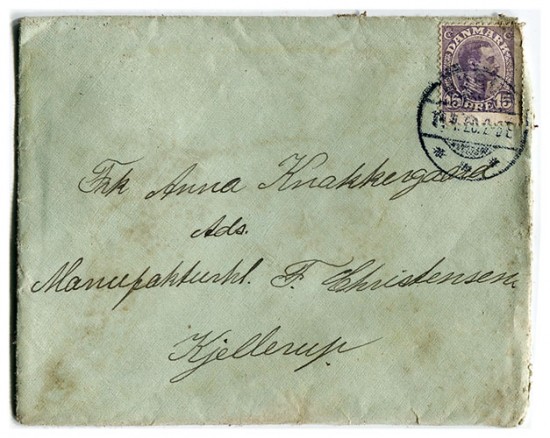 DANMARK
15 ØRE 15
Frk Anna Knakkergaard
Ads.
Manufakturhl. F. Christensen
Kjellerup